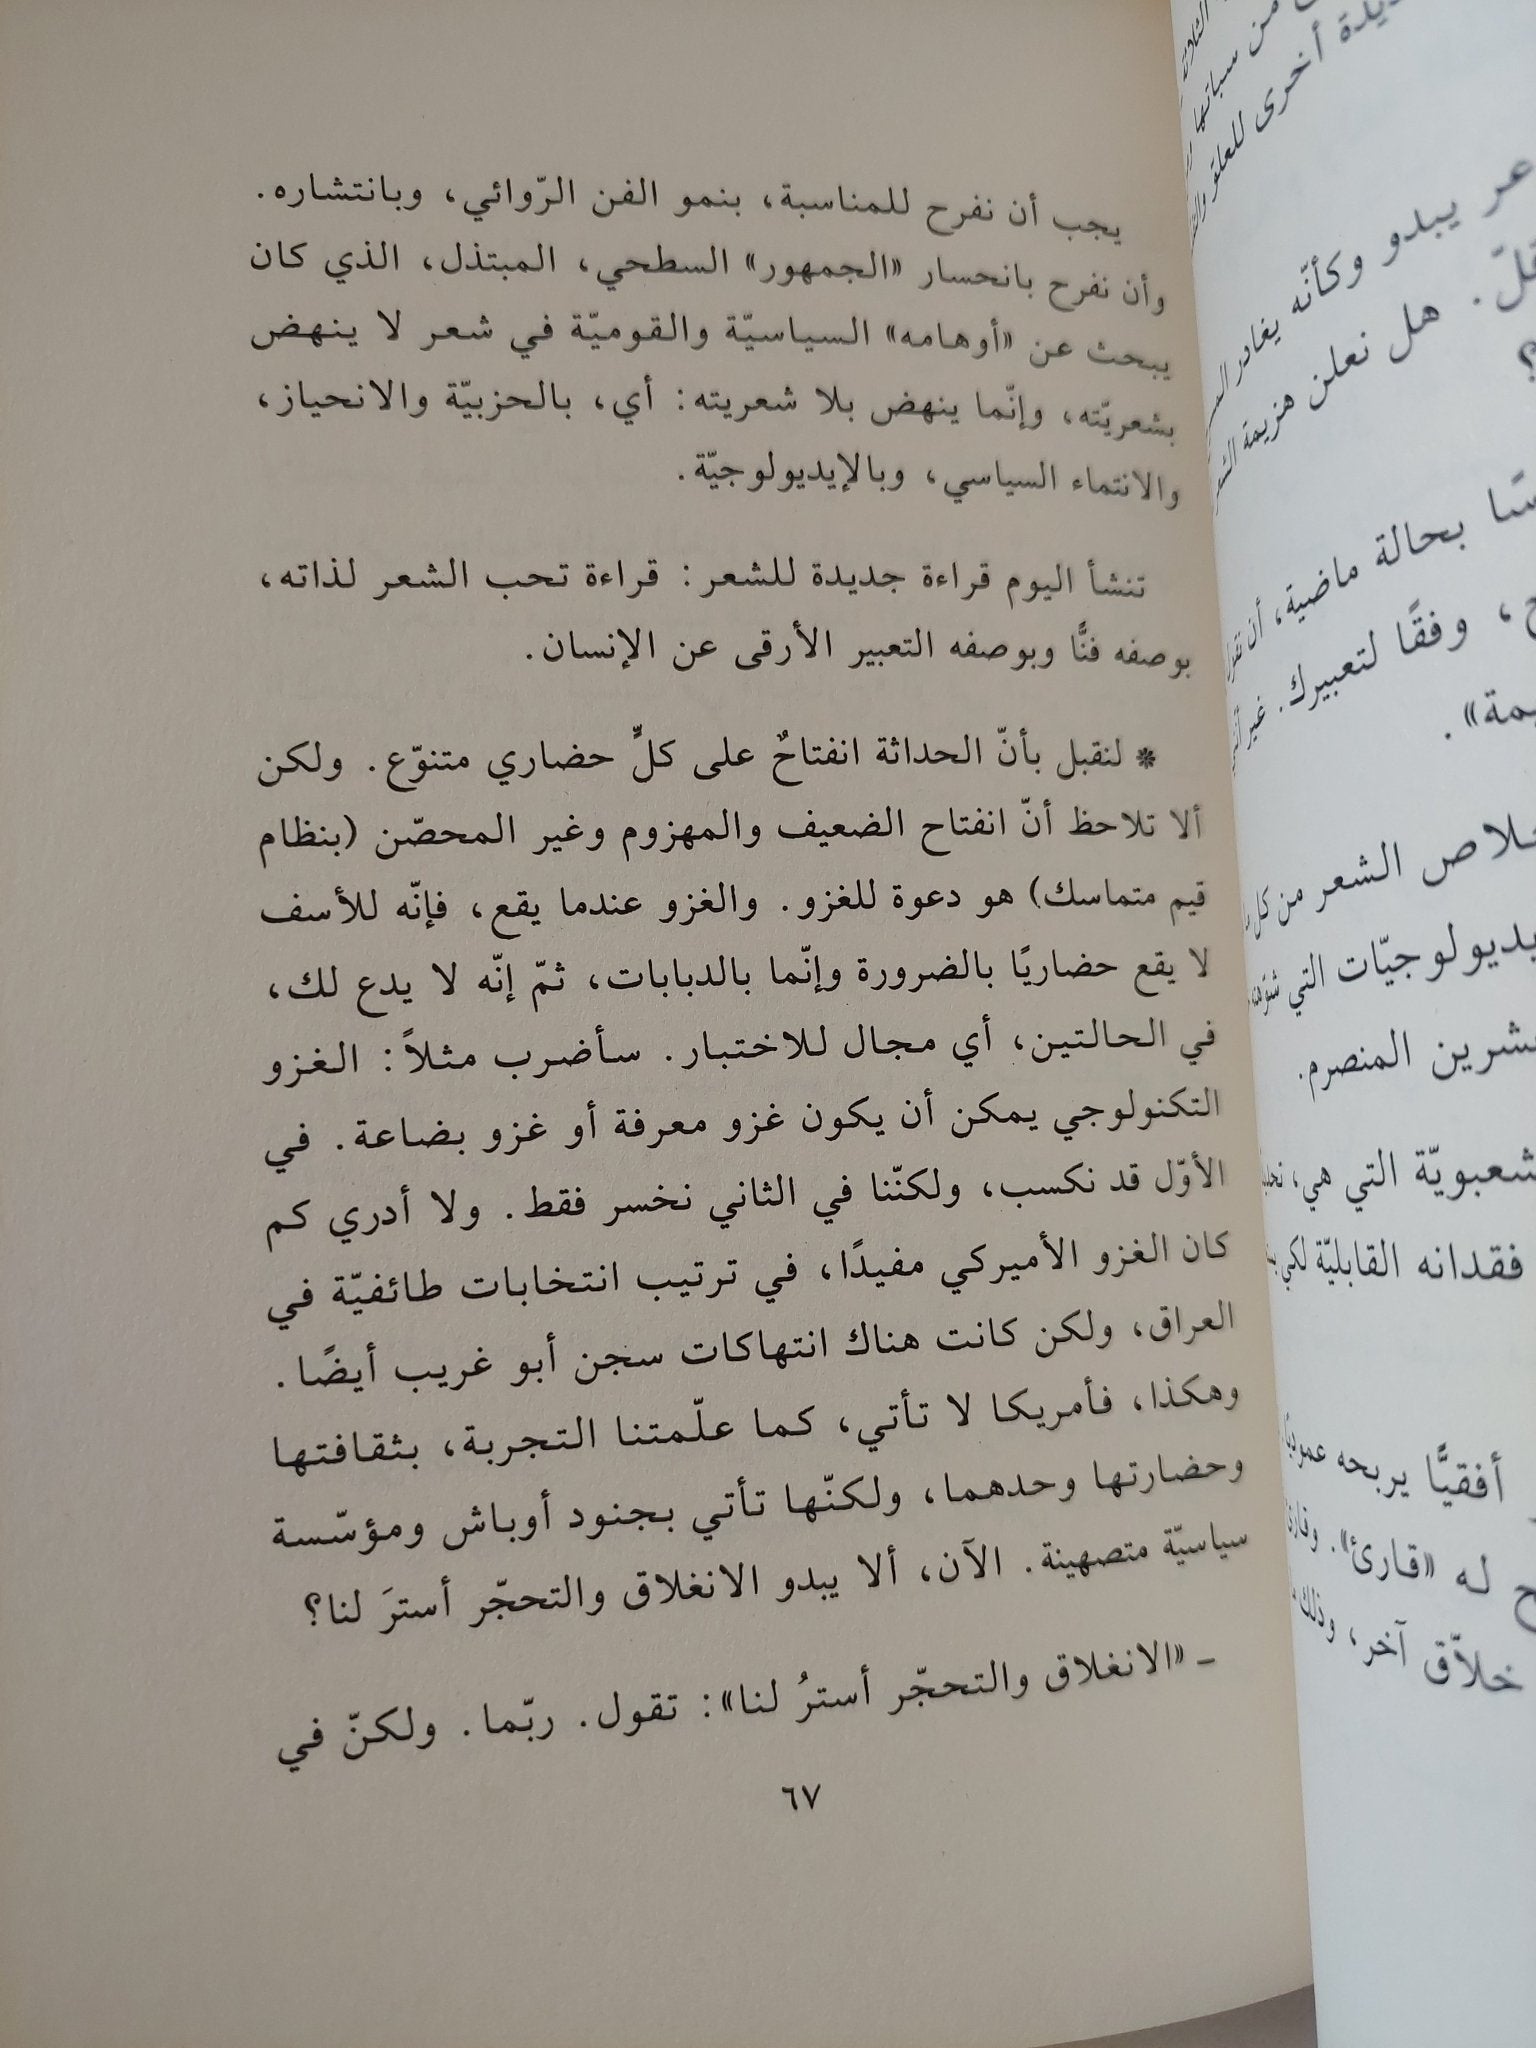 يجب أن نفرح للمناسبة، بنمو الفن الرّوائي، وبانتشاره.
وأن نفرح بانحسار «الجمهور» السطحي، المبتذل، الذي كان
يبحث عن «أوهامه» السياسيّة والقوميّة في شعر لا ينهض
بشعريّته، وإنّما ينهض بلا شعريته: أي، بالحزبيّة والانحياز،
والانتماء السياسي، وبالإيديولوجيّة.
تنشأ اليوم قراءة جديدة للشعر: قراءة تحب الشعر لذاته،
بوصفه فنًّا وبوصفه التعبير الأرقى عن الإنسان.
* لنقبل بأنّ الحداثة انفتاحٌ على كلٍّ حضاري متنوّع. ولكن
ألا تلاحظ أنّ انفتاح الضعيف والمهزوم وغير المحصّن (بنظام
قيم متماسك) هو دعوة للغزو. والغزو عندما يقع، فإنّه للأسف
لا يقع حضاريًا بالضرورة وإنّما بالدبابات، ثمّ إنّه لا يدع لك،
في الحالتين، أي مجال للاختبار. سأضرب مثلاً: الغزو
التكنولوجي يمكن أن يكون غزو معرفة أو غزو بضاعة. في
الأوّل قد نكسب، ولكنّنا في الثاني نخسر فقط. ولا أدري كم
كان الغزو الأميركي مفيدًا، في ترتيب انتخابات طائفيّة في
العراق، ولكن كانت هناك انتهاكات سجن أبو غريب أيضًا.
وهكذا، فأمريكا لا تأتي، كما علّمتنا التجربة، بثقافتها
وحضارتها وحدهما، ولكنّها تأتي بجنود أوباش ومؤسّسة
سياسيّة متصهينة. الآن، ألا يبدو الانغلاق والتحجّر أسترَ لنا؟
- «الانغلاق والتحجّر أسترُ لنا»: تقول. ربّما. ولكنّ في
٦٧
من سباتها
أخرى للعلو
يبدو وكأنّه يغادر
هل نعلن هزيمة
؟
بحالة ماضية، أن
وفقًا لتعبيرك. غير
الشعر من كل
التي
المنصرم.
التي هي،
فقدانه القابليّة لكي
أفقيًّا يربحه
له «قارئ».
خلاّق آخر، وذلك